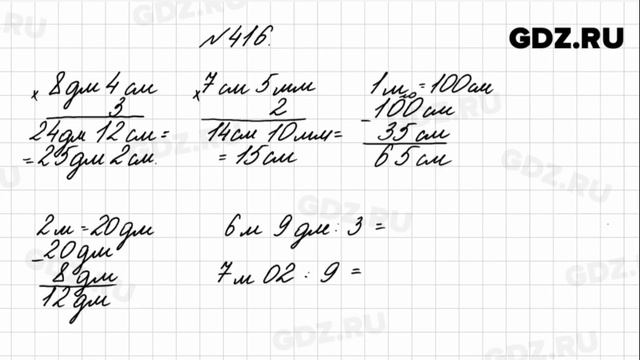 №416.
GDZ.RU
× 8дм 4см
3
24дм 12см =
= 25дм 2см.
× 7см 5мм
2
14см 10мм =
= 15см
1м = 100см
- 100см
35см
65см
2м = 20дм
- 20дм
8дм
12дм
6м 9дм : 3 =
7м 02 : 9 =